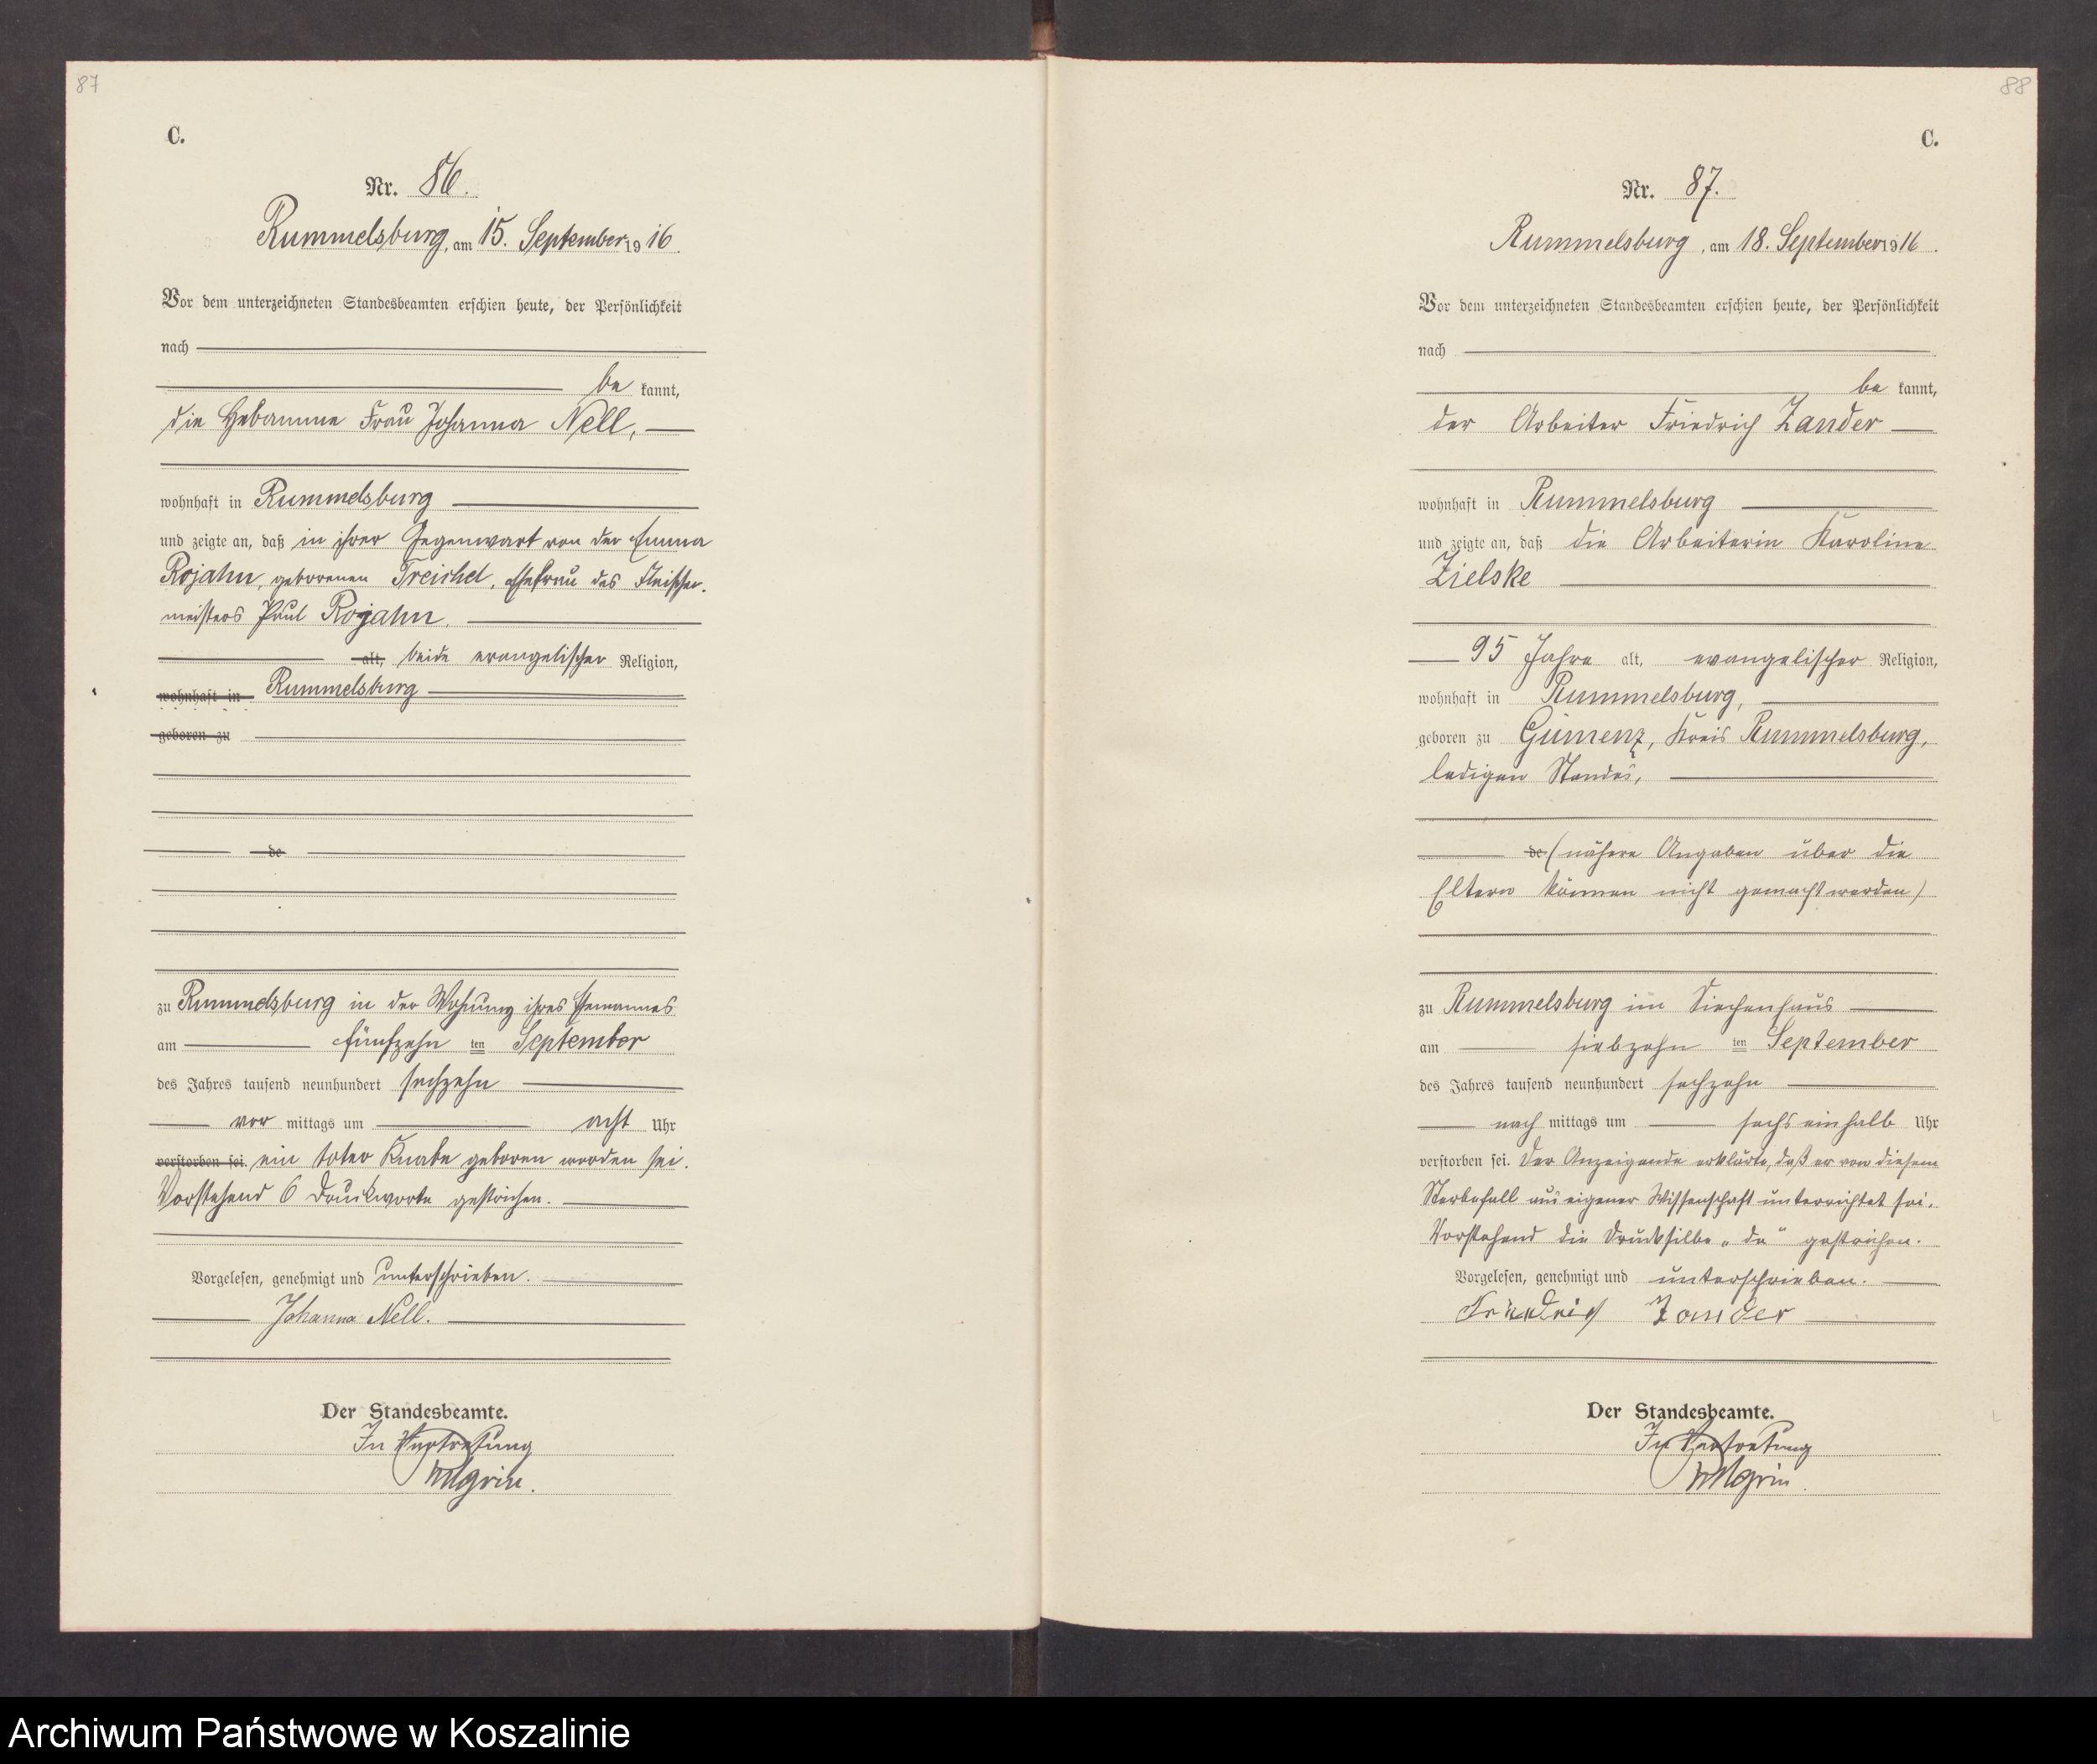 87
C.
Nr. 86.
Rummelsburg, am 15. September 1916.
Vor dem unterzeichneten Standesbeamten erschien heute, der Persönlichkeit
nach
be kannt,
die Hebamme Frau Johanna Nell,
wohnhaft in Rummelsburg
und zeigte an, daß in ihrer Gegenwart von der Emma
Rojahn, geborenen Treichel, Ehefrau des Fleischer-
meisters Paul Rojahn,
alt, beide evangelischer Religion,
wohnhaft in Rummelsburg
geboren zu
de
zu Rummelsburg in der Wohnung ihres Ehemannes
am fünfzehn ten September
des Jahres tausend neunhundert sechzehn
vor mittags um acht Uhr
verstorben sei. ein toter Knabe geboren worden sei.
Vorstehend 6 Druckworte gestrichen.
Vorgelesen, genehmigt und unterschrieben.
Johanna Nell.
Der Standesbeamte.
In Vertretung
88
C.
Nr. 87.
Rummelsburg, am 18. September 1916.
Vor dem unterzeichneten Standesbeamten erschien heute, der Persönlichkeit
nach
be kannt,
der Arbeiter Friedrich Zander
wohnhaft in Rummelsburg
und zeigte an, daß die Arbeiterin Karoline
Zielske
95 Jahre alt, evangelischer Religion,
wohnhaft in Rummelsburg,
geboren zu Gumenz, Kreis Rummelsburg,
ledigen Standes,
de (nähere Angaben über die
Eltern können nicht gemacht werden)
zu Rummelsburg im Siechenhaus
am siebzehn ten September
des Jahres tausend neunhundert sechzehn
nach mittags um sechs einhalb Uhr
verstorben sei. Der Anzeigende erklärte, daß er von diesem
Sterbefall aus eigener Wissenschaft unterrichtet sei.
Vorstehend die Drucksilbe „de“ gestrichen.
Vorgelesen, genehmigt und unterschrieben.
Friedrich Zander
Der Standesbeamte.
In Vertretung
Archiwum Państwowe w Koszalinie